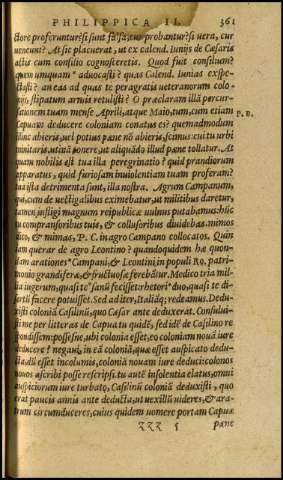 PHILIPPICA II. 361
ctore proferuntur? si sunt falsa, cur probantur? si uera, cur
ueneunt? At sic placuerat, ut ex calend. Iunijs de Cæsaris
actis cum consilio cognosceretis. Quod fuit consilium?
quem unquam aduocasti? quas Calend. Iunias expe-
ctasti? an eas ad quas te peragratis ueteranorum colo-
nijs, stipatum armis retulisti? O præclaram illā percur-
sationem tuam mense Aprili, atque Maio, tum, cum etiam
Capuam deducere coloniam conatus es? quemadmodum
illinc abieris, uel potius pene nō abieris, scimus: cui tu urbi
minitaris. utinā conere, ut aliquādo illud pane tollatur. At
quam nobilis est tua illa peregrinatio? quid prandiorum
apparatus, quid furiosam inuolentiam tuam proferam?
tua ista detrimenta sunt, illa nostra. Agrum Campanum,
qui, cum de uectigalibus eximebatur, ut militibus daretur,
tamen infligi magnum reipublicæ uulnus putabamus: hūc
tu compransoribus tuis, & collusoribus diuidebas. mimos
dico, & mimas, P. C. in agro Campano collocatos. Quid
iam querar de agro Leontino? quandoquidem hæ quon-
dam arationes Campani, & Leontini, in populi Ro. patri-
monio grandiferæ, & fructuosæ ferebātur. Medico tria mil-
lia iugerum, quasi te sanū fecisset: rhetori duo, quasi te di-
sertū facere potuisset. Sed ad iter, Italiāq; redeamus. Dedu-
xisti coloniā Casilinū, quo Cæsar ante deduxerat. Consului-
sti me per litteras de Capua tu quidē, sed idē de Casilino re
spondissem: possesne, ubi colonia esset, eo coloniam nouā iure
deducere? negaui, in eā coloniā, quæ esset auspicato dedu-
cta, dū esset incolumis, coloniā nouam iure deduci: colonos
nouos ascribi posse rescripsi. tu autē insolentia elatus, omni
auspiciorum iure turbato, Casilinū coloniā deduxisti, quo
erat paucis annis ante deducta, ut uexillū uideres, & ara-
trum circumduceres, cuius quidem uomere portam Capuæ
pene